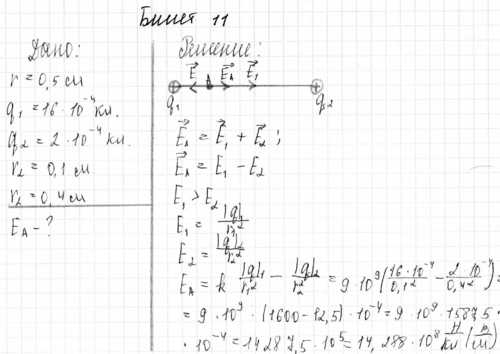 Билет 11
Дано:
r = 0,5 см
q₁ = 16 · 10⁻⁴ Кл.
q₂ = 2 · 10⁻⁴ Кл.
r₂ = 0,1 см
r₂ = 0,4 см
E_A - ?
Решение:
E⃗ A E⃗_A E⃗₁
q₁ q₂
E⃗_A = E⃗₁ + E⃗₂ ;
E⃗_A = E₁ - E₂
E₁ > E₂
E₁ = |q|₁/r₁²
E₂ = |q|₂/r₂²
E_A = k |q|₁/r₁² - |q|₂/r₂² = 9 · 10⁹ (16 · 10⁻⁴/0,1² - 2 · 10⁻⁴/0,4²) =
= 9 · 10⁹ · (1600 - 12,5) · 10⁻⁴ = 9 · 10⁹ · 1587,5 ·
· 10⁻⁴ = 14287,5 · 10⁵ = 14,288 · 10⁸ Н/Кл (В/м)